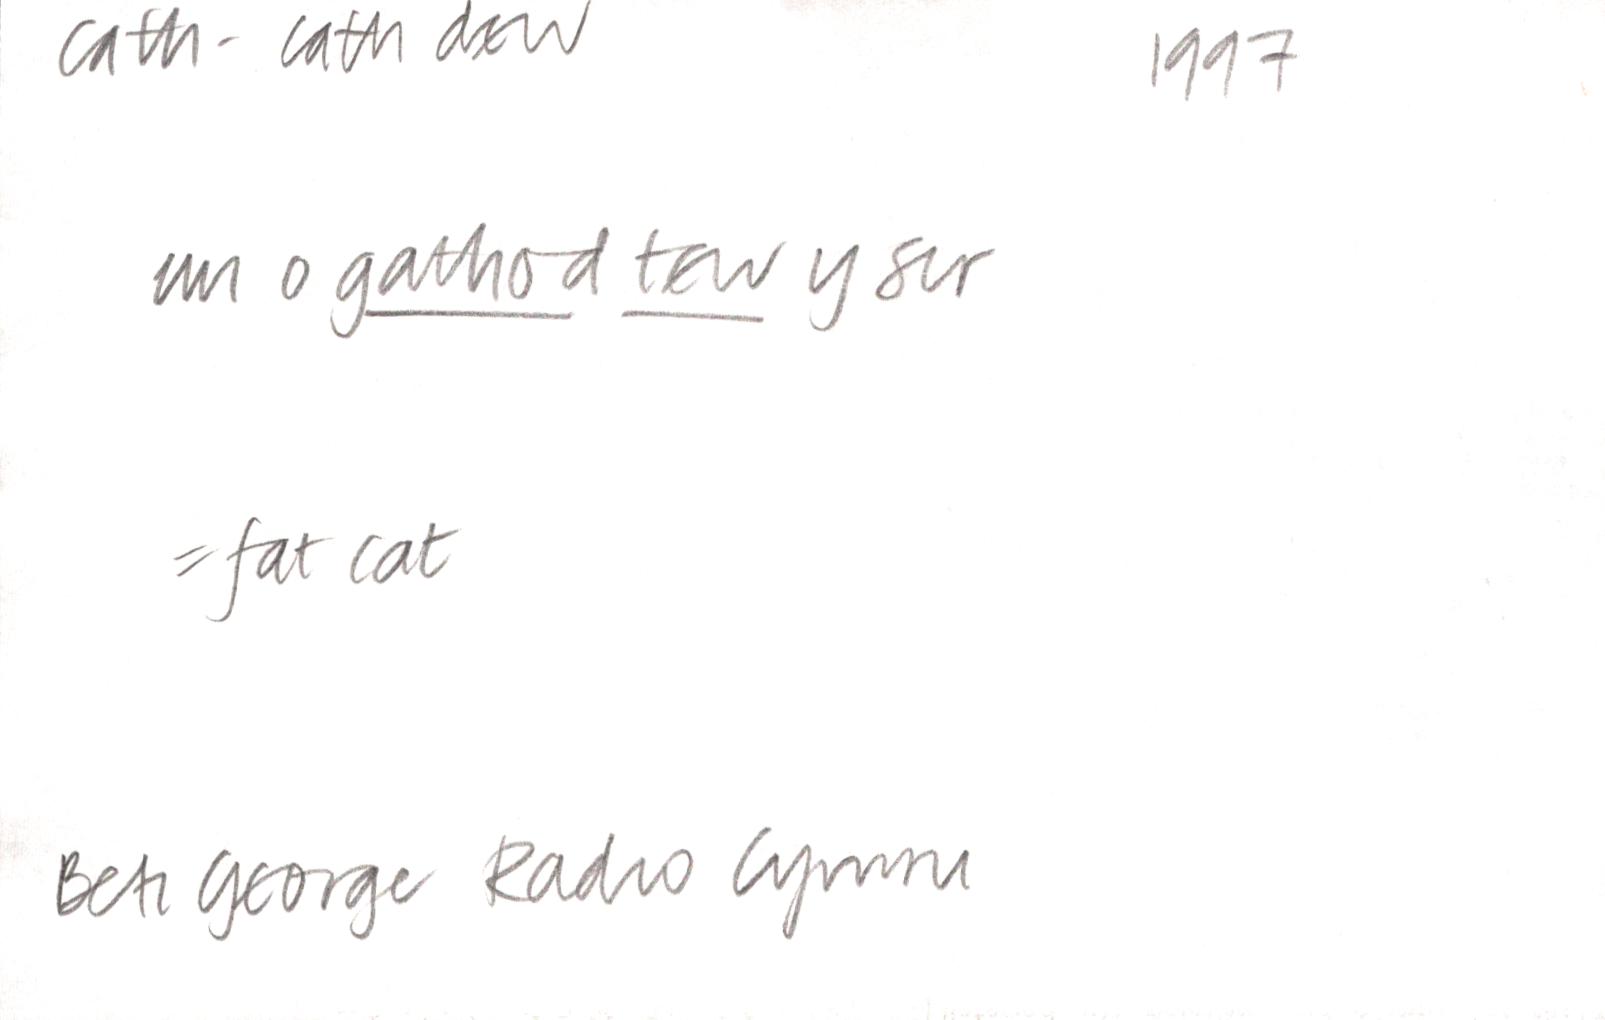 cath - cath dew 1997
un o gathod tew y sir
= fat cat
Beti George Radio Cymru